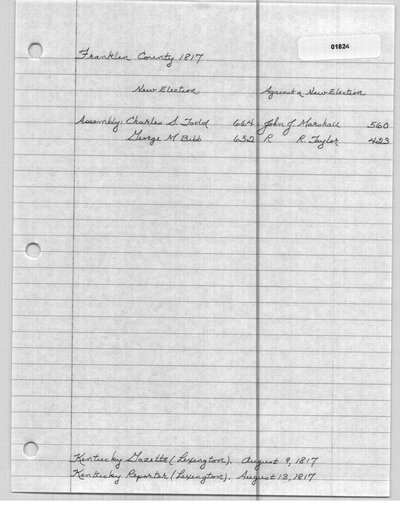 01824
Franklin County 1817
New Election Against a New Election
Assembly: Charles S. Todd 664 John J Marshall 560
George M Bibb 652 R R. Taylor 423
Kentucky Gazette (Lexington). August 9, 1817
Kentucky Reporter (Lexington). August 13, 1817